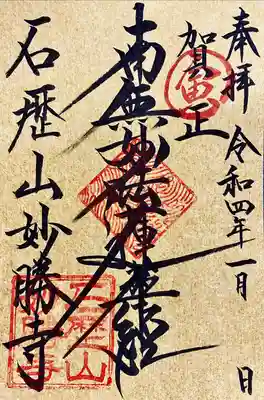 奉拝 令和四年一月 日
賀正
南無妙法蓮華経
石歴山妙勝寺